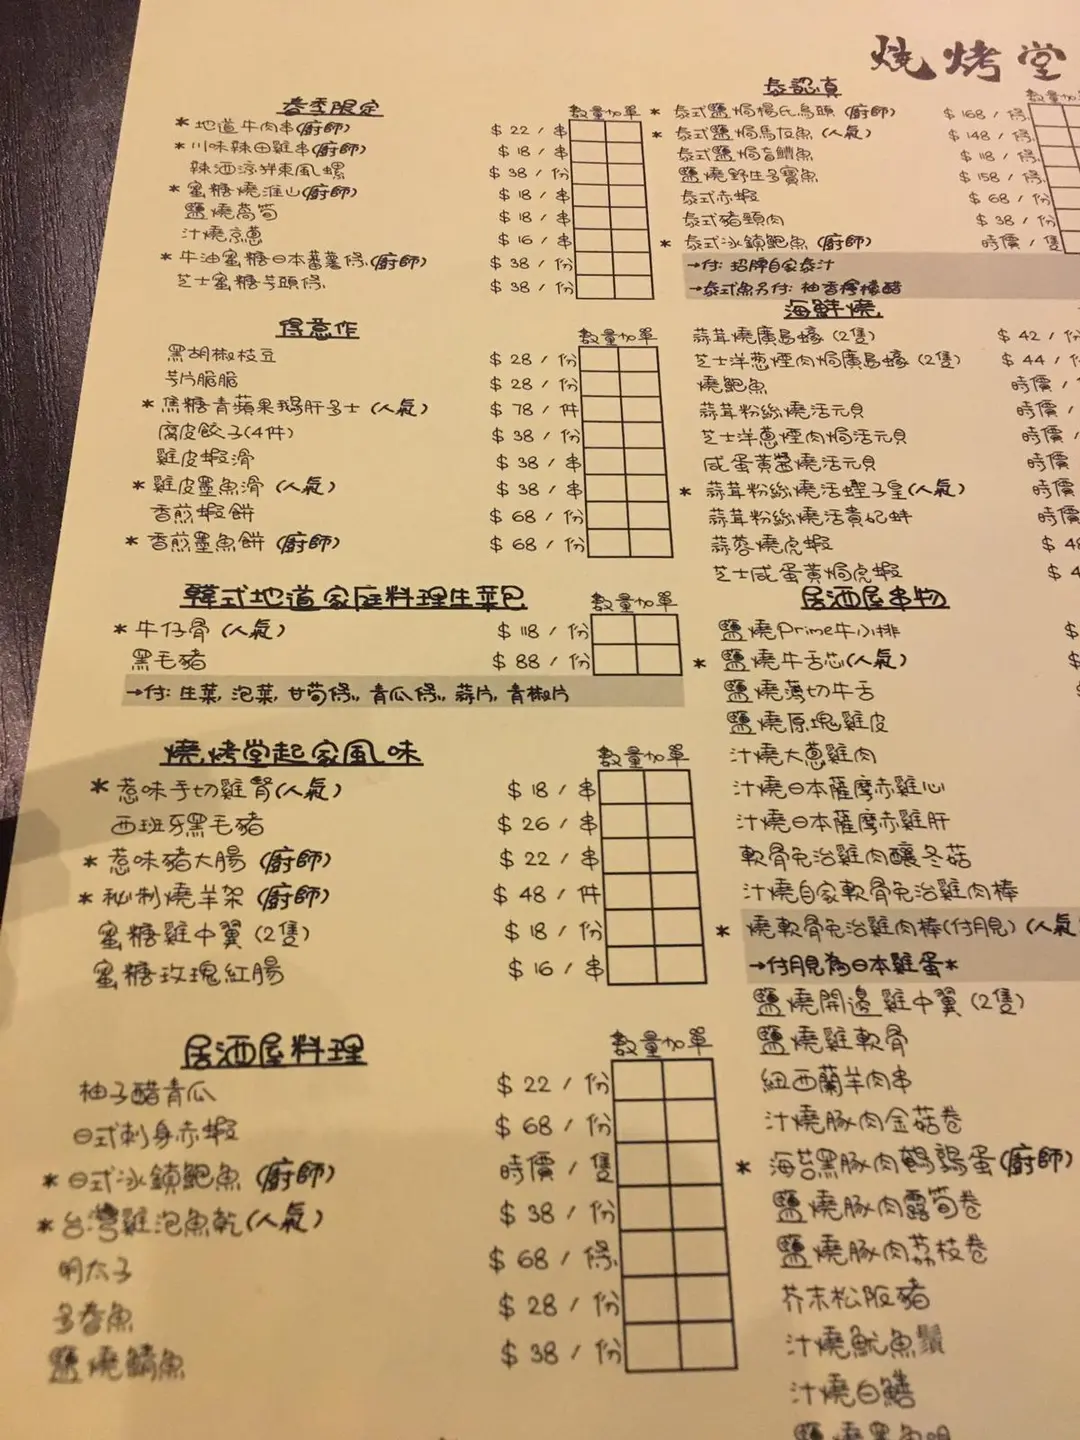 燒烤堂
春季限定
數量 加單
* 地道牛肉串(廚師) $ 22 / 串
* 川味辣田雞串(廚師) $ 18 / 串
辣酒涼拌東風螺 $ 38 / 份
* 蜜糖燒淮山(廚師) $ 18 / 串
鹽燒萵筍 $ 18 / 串
汁燒京蔥 $ 16 / 串
* 牛油蜜糖日本蕃薯條(廚師) $ 38 / 份
芝士蜜糖芋頭條 $ 38 / 份
得意作
數量 加單
黑胡椒枝豆 $ 28 / 份
芋片脆脆 $ 28 / 份
* 焦糖青蘋果鵝肝多士 (人氣) $ 78 / 件
腐皮餃子(4件) $ 38 / 份
雞皮蝦滑 $ 38 / 串
* 雞皮墨魚滑 (人氣) $ 38 / 串
香煎蝦餅 $ 68 / 份
* 香煎墨魚餅 (廚師) $ 68 / 份
韓式地道家庭料理生菜包
數量 加單
* 牛仔骨 (人氣) $ 118 / 份
黑毛豬 $ 88 / 份
→付: 生菜, 泡菜, 甘筍條, 青瓜條, 蒜片, 青椒片
燒烤堂起家風味
數量 加單
* 惹味手切雞腎(人氣) $ 18 / 串
西班牙黑毛豬 $ 26 / 串
* 惹味豬大腸 (廚師) $ 22 / 串
* 秘制燒羊架 (廚師) $ 48 / 件
蜜糖雞中翼 (2隻) $ 18 / 份
蜜糖玫瑰紅腸 $ 16 / 串
居酒屋料理
數量 加單
柚子醋青瓜 $ 22 / 份
日式刺身赤蝦 $ 68 / 份
* 日式冰鎮鮑魚 (廚師) 時價 / 隻
* 台灣雞泡魚乾(人氣) $ 38 / 份
明太子 $ 68 / 條
多春魚 $ 28 / 份
鹽燒鯖魚 $ 38 / 份
泰認真
數量
* 泰式鹽焗楊氏烏頭 (廚師) $ 168 / 條
* 泰式鹽焗馬友魚 (人氣) $ 148 / 條
泰式鹽焗盲鰽魚 $ 118 / 條
鹽燒野生多寶魚 $ 158 / 條
泰式赤蝦 $ 68 / 份
泰式豬頸肉 $ 38 / 份
* 泰式冰鎮鮑魚 (廚師) 時價 / 隻
→付: 招牌自家泰汁
→泰式魚另付: 柚香檸檬醋
海鮮燒
蒜茸燒廣島蠔 (2隻) $ 42 / 份
芝士洋蔥煙肉焗廣島蠔 (2隻) $ 44 / 份
燒鮑魚 時價 /
蒜茸粉絲燒活元貝 時價 /
芝士洋蔥煙肉焗活元貝 時價 /
咸蛋黃醬燒活元貝 時價
* 蒜茸粉絲燒活蟶子皇(人氣) 時價
蒜茸粉絲燒活貴妃蚌 時價
蒜蓉燒虎蝦 $ 4
芝士咸蛋黃焗虎蝦 $ 4
居酒屋串物
鹽燒Prime牛小排 $
* 鹽燒牛舌芯(人氣) $
鹽燒薄切牛舌
鹽燒原塊雞皮
汁燒大蔥雞肉
汁燒日本薩摩赤雞心
汁燒日本薩摩赤雞肝
軟骨免治雞肉釀冬菇
汁燒自家軟骨免治雞肉棒
* 燒軟骨免治雞肉棒(付月見) (人氣
→付月見為日本雞蛋*
鹽燒開邊雞中翼 (2隻)
鹽燒雞軟骨
紐西蘭羊肉串
汁燒豚肉金菇卷
* 海苔黑豚肉鵪鶉蛋(廚師)
鹽燒豚肉露筍卷
鹽燒豚肉荔枝卷
芥末松阪豬
汁燒魷魚鬚
汁燒白鱔